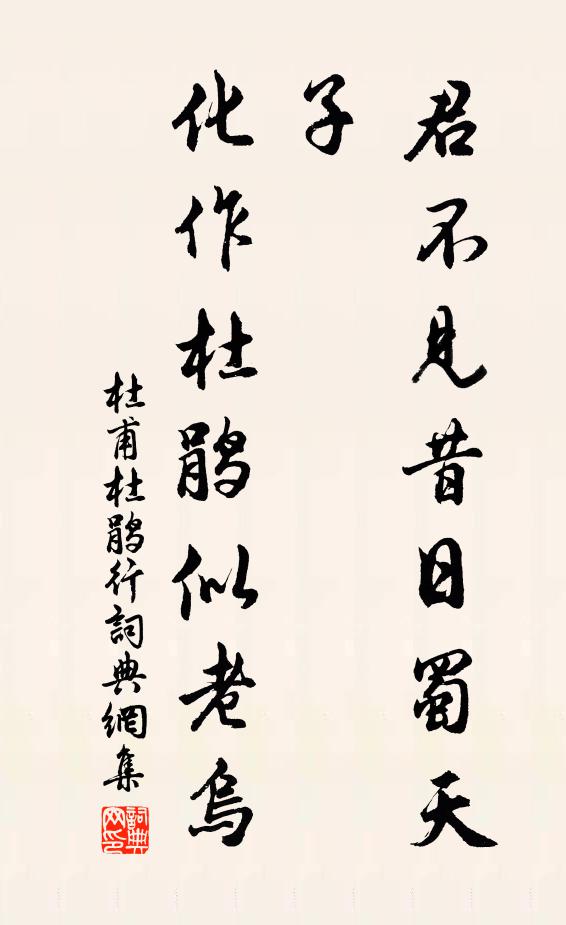 君不見昔日蜀天
子
化作杜鵑似老烏
杜甫杜鵑行詞典網集
詞典網印